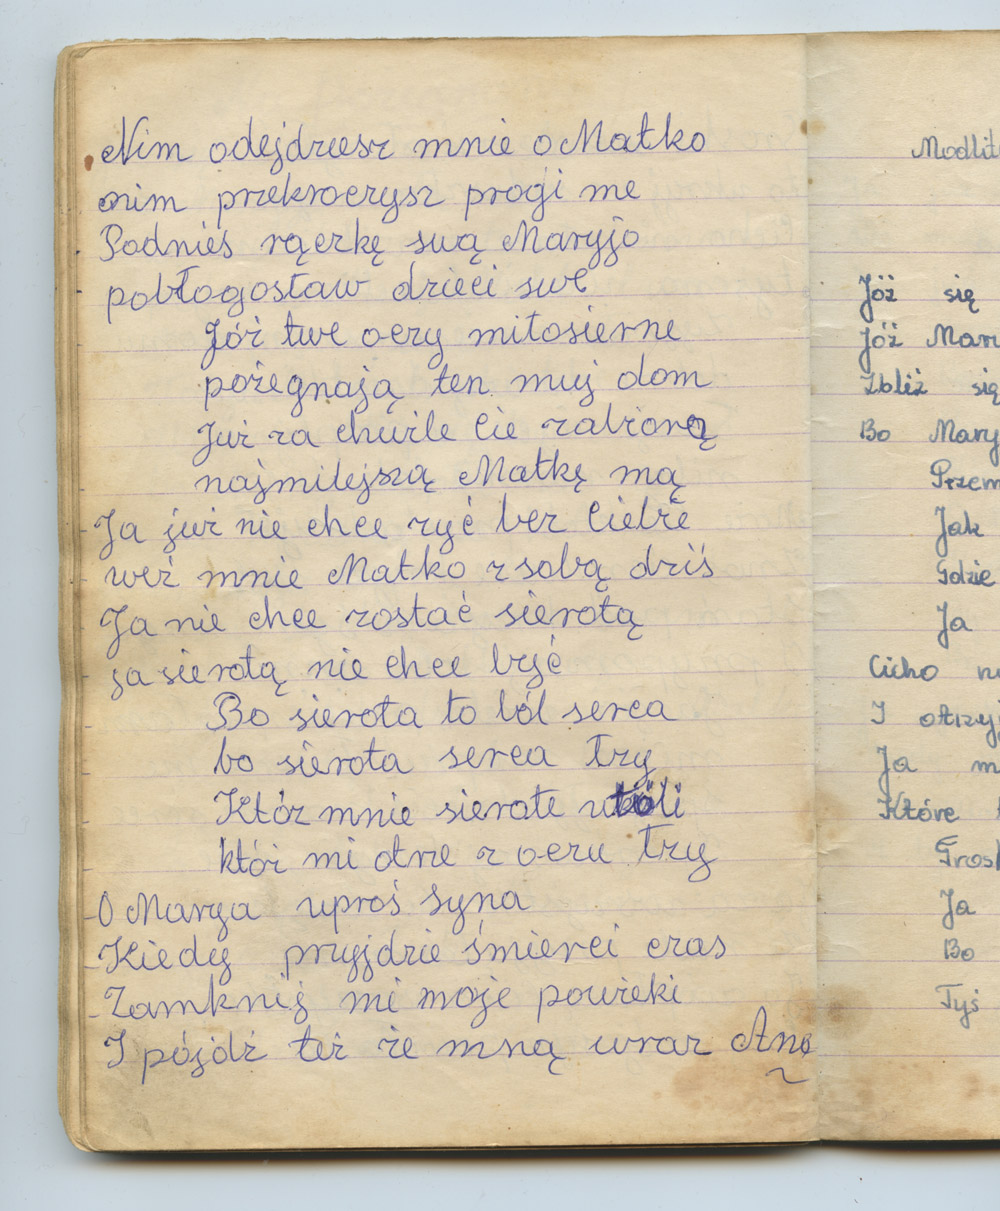 Nim odejdziesz mnie o Matko
nim przekroczysz progi me
Podnieś rączkę swą Maryjo
pobłogostaw dzieci swe
Jóż twe oczy miłosierne
pożegnają ten muj dom
Już za chwile Cie zabiorą
najmilejszą Matkę mą
Ja już nie chce zyć bez Ciebie
weź mnie Matko z sobą dziś
Ja nie chce zostać sierotą
ja sierotą nie chce być
Bo sierota to ból serca
bo sierota serca łzy
Któz mnie sierote utóli
któż mi otrze z oczu łzy
O Marya uproś syna
Kiedy przyjdzie śmierci czas
Zamknij mi moje powieki
I pójdź też że mną wraz
Modlit
Jóż się
Jóż Mary
Zbliż się
Bo Mary
Przem
Jak
Gdzie
Ja
Cicho
I otrzyj
Ja m
Które
Grosl
Ja
Bo
Tyś